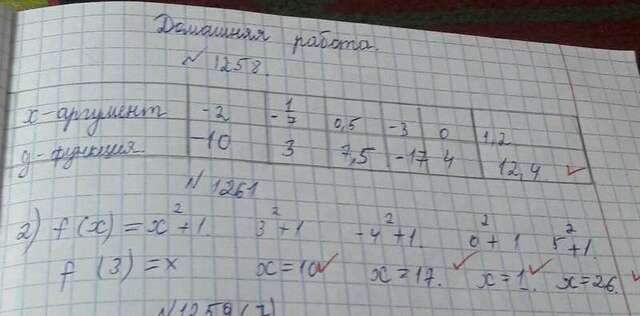 Домашняя работа.
№ 1258.
x-аргумент -2 -1/7 0,5 -3 0 1,2
y-функция. -10 3 7,5 -17 4 12,4
№ 1261
2) f(x) = x²+1. 3²+1 -4²+1. 0²+1 5²+1.
f(3)=x x=10 x=17. x=1. x=26.
№1259(7)